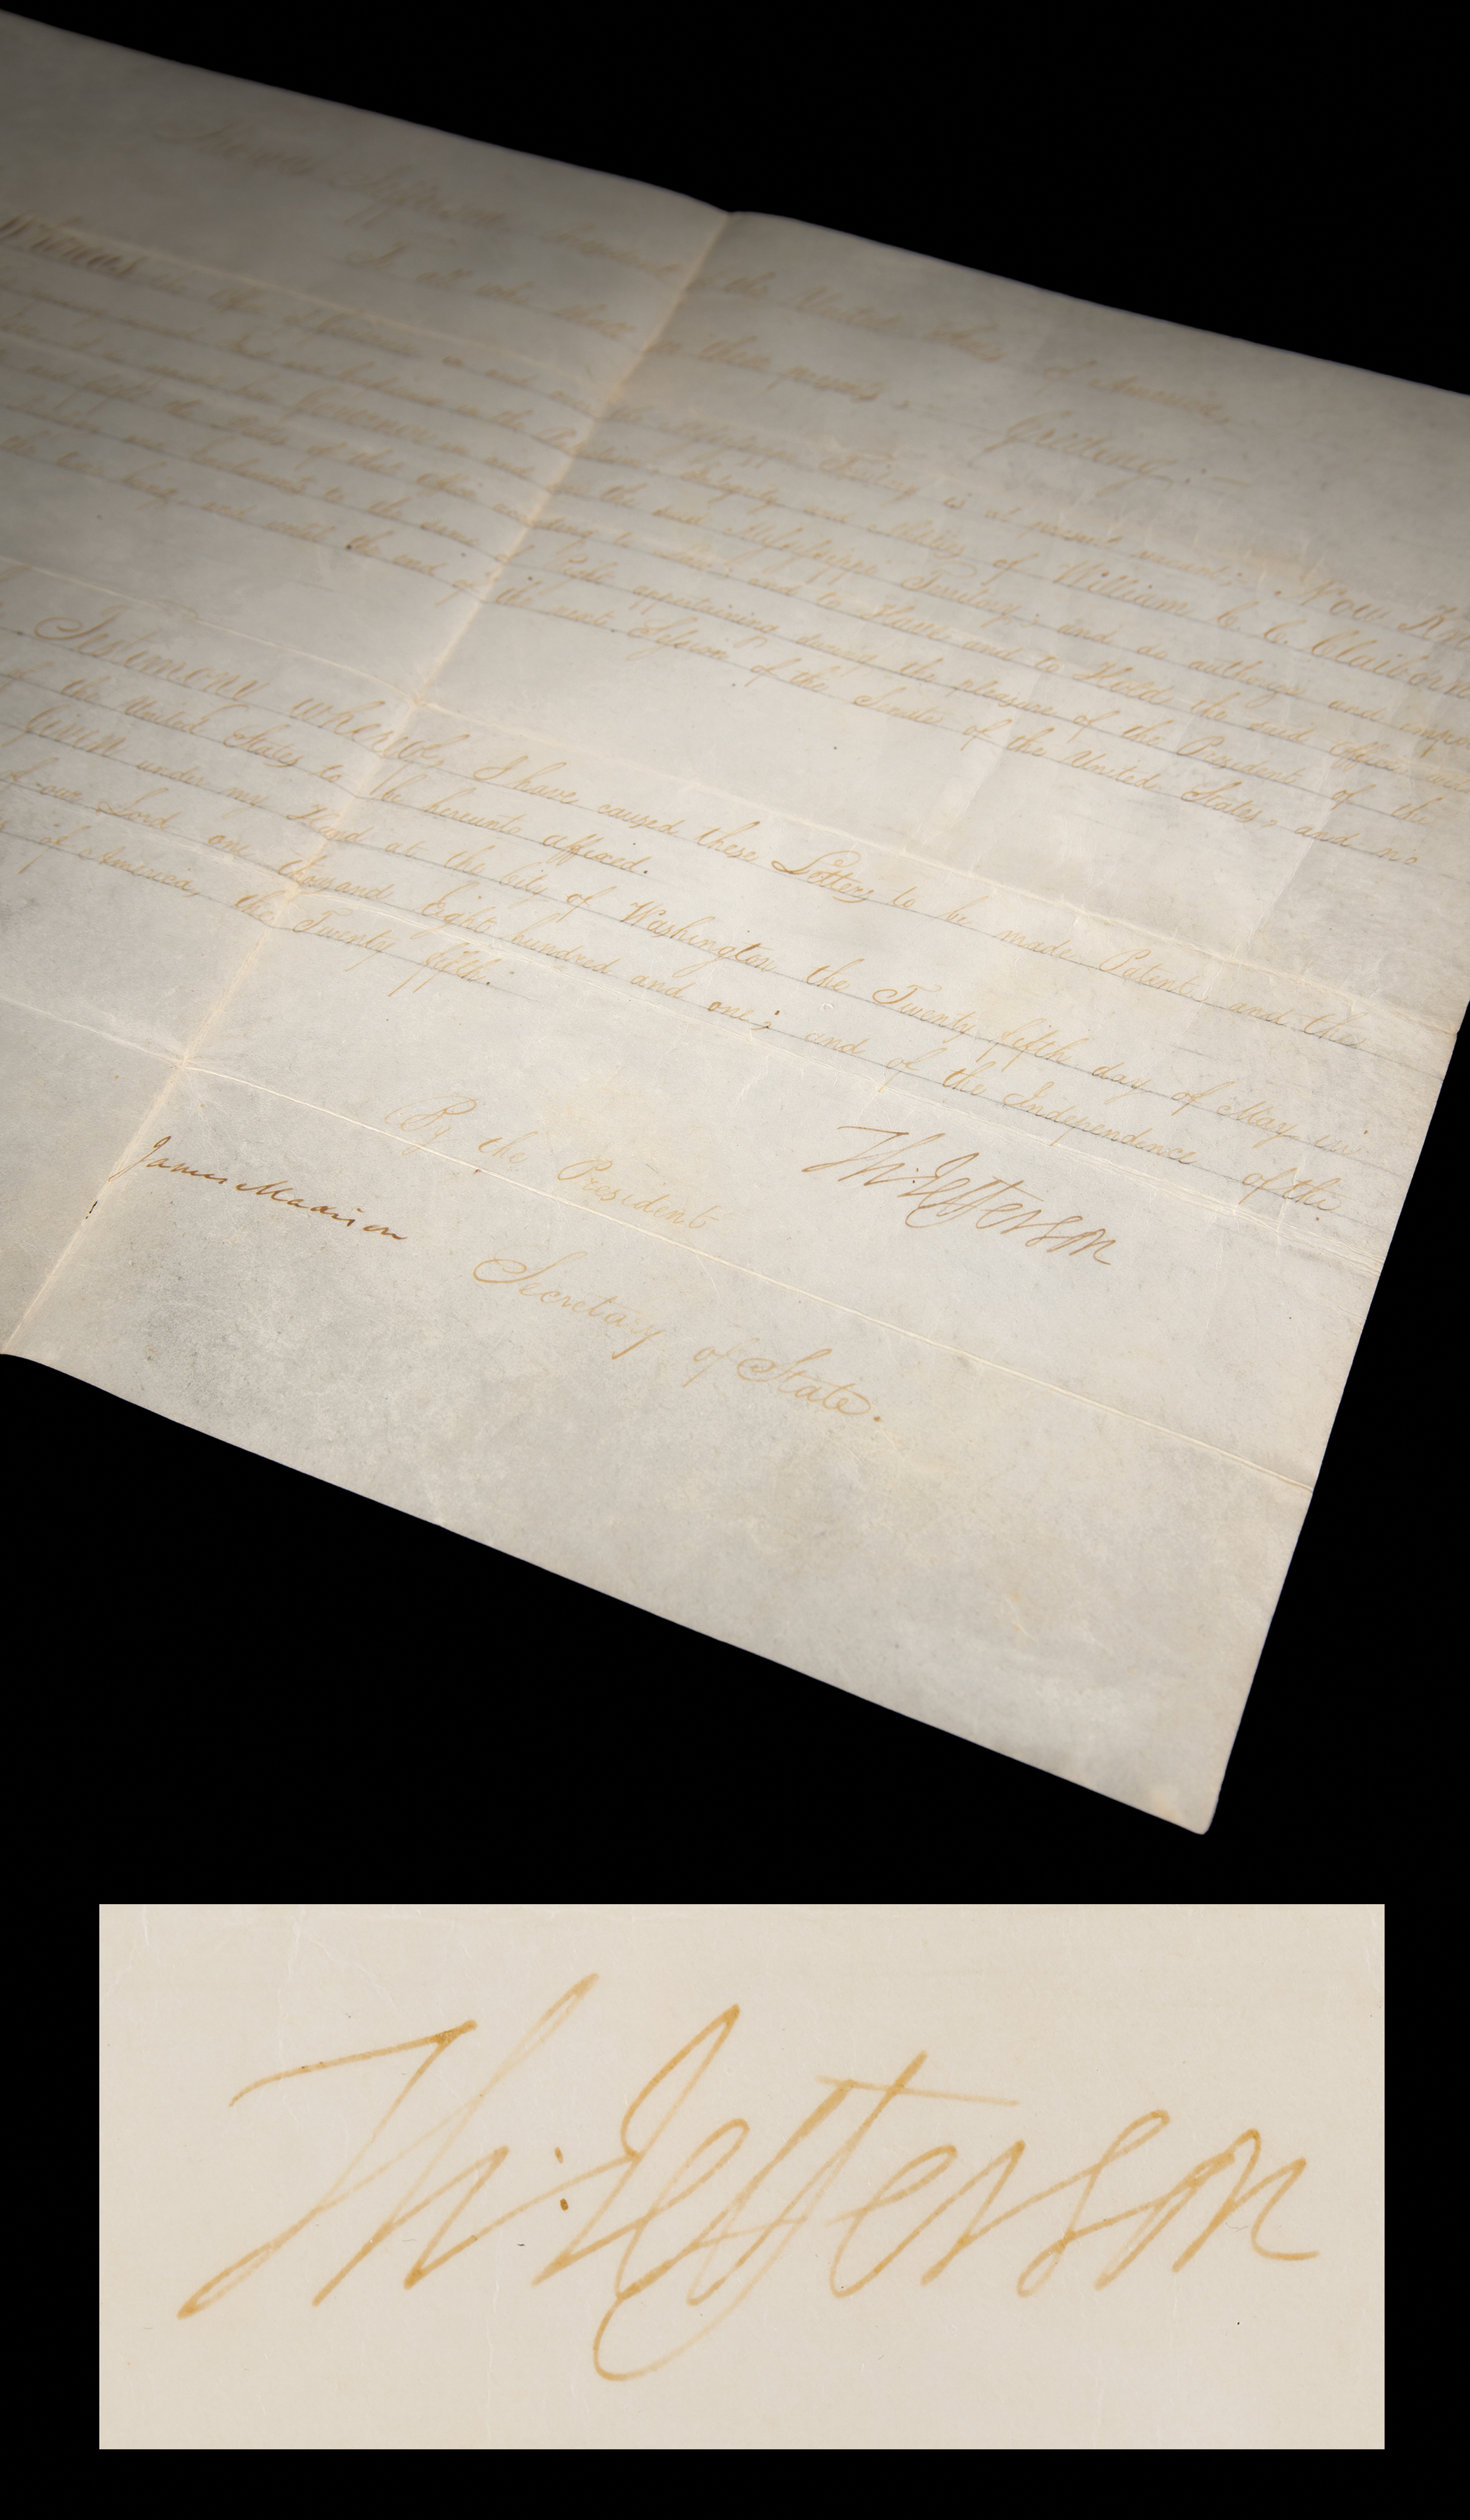 Thomas Jefferson, President of the United States of America,
To all who shall see these presents, Greeting.
Whereas the Office of Governor in and over the Mississippi Territory is at present vacant: Now Kn
in the Wisdom, Integrity and Abilities of William C. C. Claiborn
Governor in and over the said Mississippi Territory; and do authorize and empower
and fulfil the duties of that Office according to Law; and to Have and to Hold the said Office with
and Emoluments to the same of Right appertaining during the pleasure of the President of the
the time being, and until the end of the next Session of the Senate of the United States, and no
Testimony whereof, I have caused these Letters to be made Patent and the
of the United States to be hereunto affixed.
Given under my Hand at the City of Washington the Twenty fifth day of May in
of our Lord one thousand Eight hundred and one; and of the Independence of the
of America, the Twenty fifth.
Th: Jefferson
By the President
James Madison Secretary of State.
Th: Jefferson